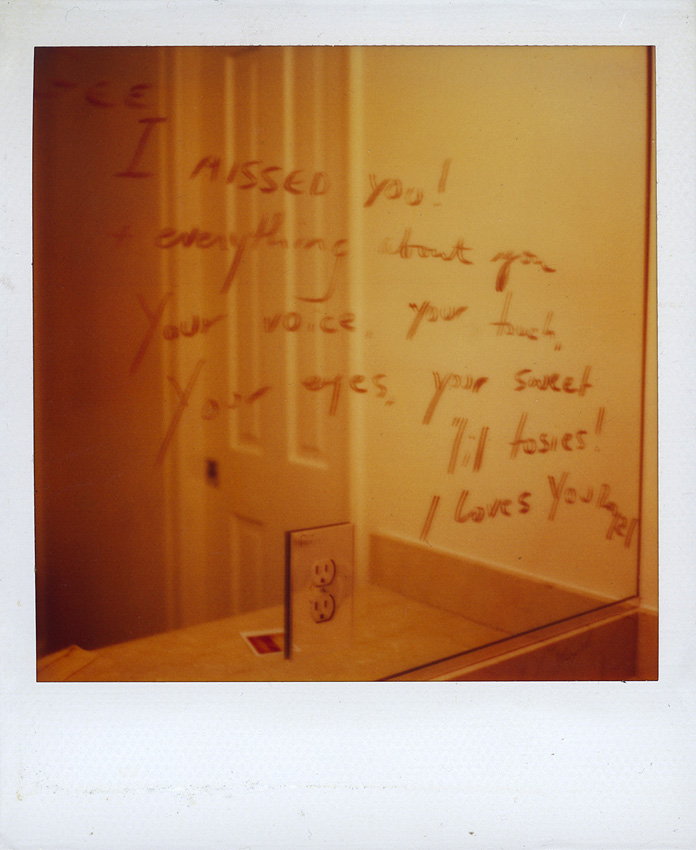 I MISSED you!
+ everything about you
Your voice, your touch,
Your eyes, your sweet
lil tosies!
I Loves You